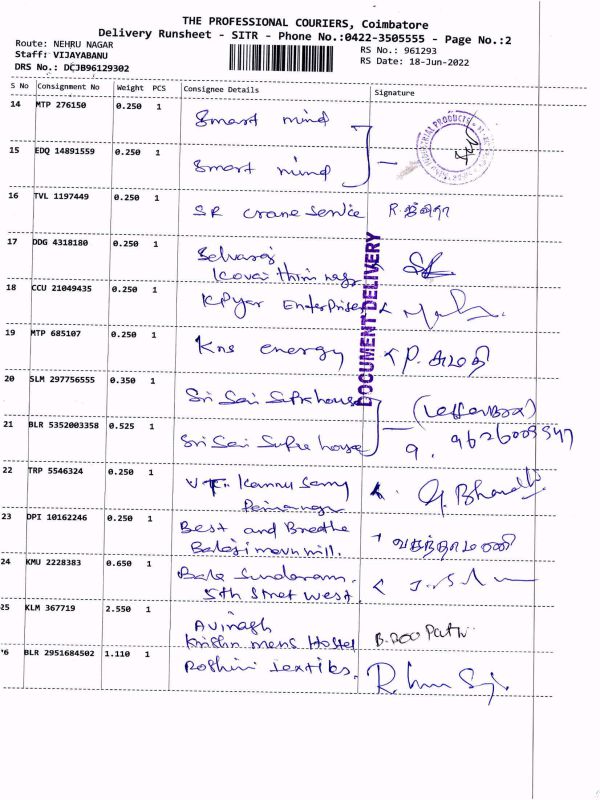 THE PROFESSIONAL COURIERS, Coimbatore
Delivery Runsheet - SITR - Phone No.:0422-3505555 - Page No.:2
Route: NEHRU NAGAR
RS No.: 961293
Staff: VIJAYABANU
RS Date: 18-Jun-2022
DRS No.: DCJB96129302
S No Consignment No Weight PCS Consignee Details Signature
14 MTP 276150 0.250 1 Smart mind
INDUSTRIAL PRODUCTS
15 EDQ 14891559 0.250 1 Smart mind
16 TVL 1197449 0.250 1 SR crane Service
17 DDG 4318180 0.250 1 Selvaraj
Kovai thiru nagar
DOCUMENT DELIVERY
18 CCU 21049435 0.250 1 KPyar Enterprises
19 MTP 685107 0.250 1 Kns energy P. அமதி
20 SLM 297756555 0.350 1 Sri Sai
21 BLR 5352003358 0.525 1 Sri Sai
(Letterbox)
22 TRP 5546324 0.250 1 Kannu Samy G. Bharathi
23 DPI 10162246 0.250 1 Best and Breathe
Balaji mill. வசந்தாமணி
24 KMU 2228383 0.650 1 Bala Sundaram.
5th Street west.
25 KLM 367719 2.550 1 Avinash
Krishn mens Hostel
26 BLR 2951684502 1.110 1 Roshini textiles.